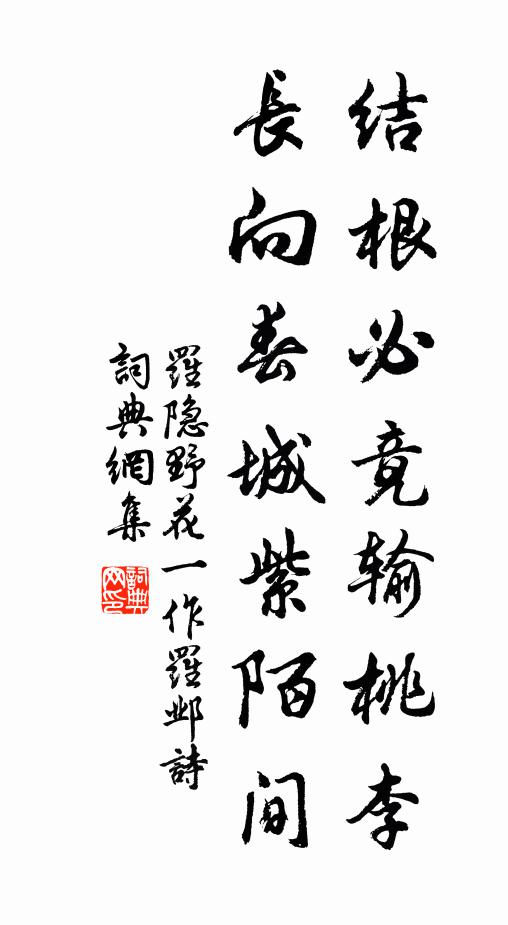 结根必竟输桃李
長向春城紫陌间
羅隐野花一作羅邺詩
詞典網集
詞典网印